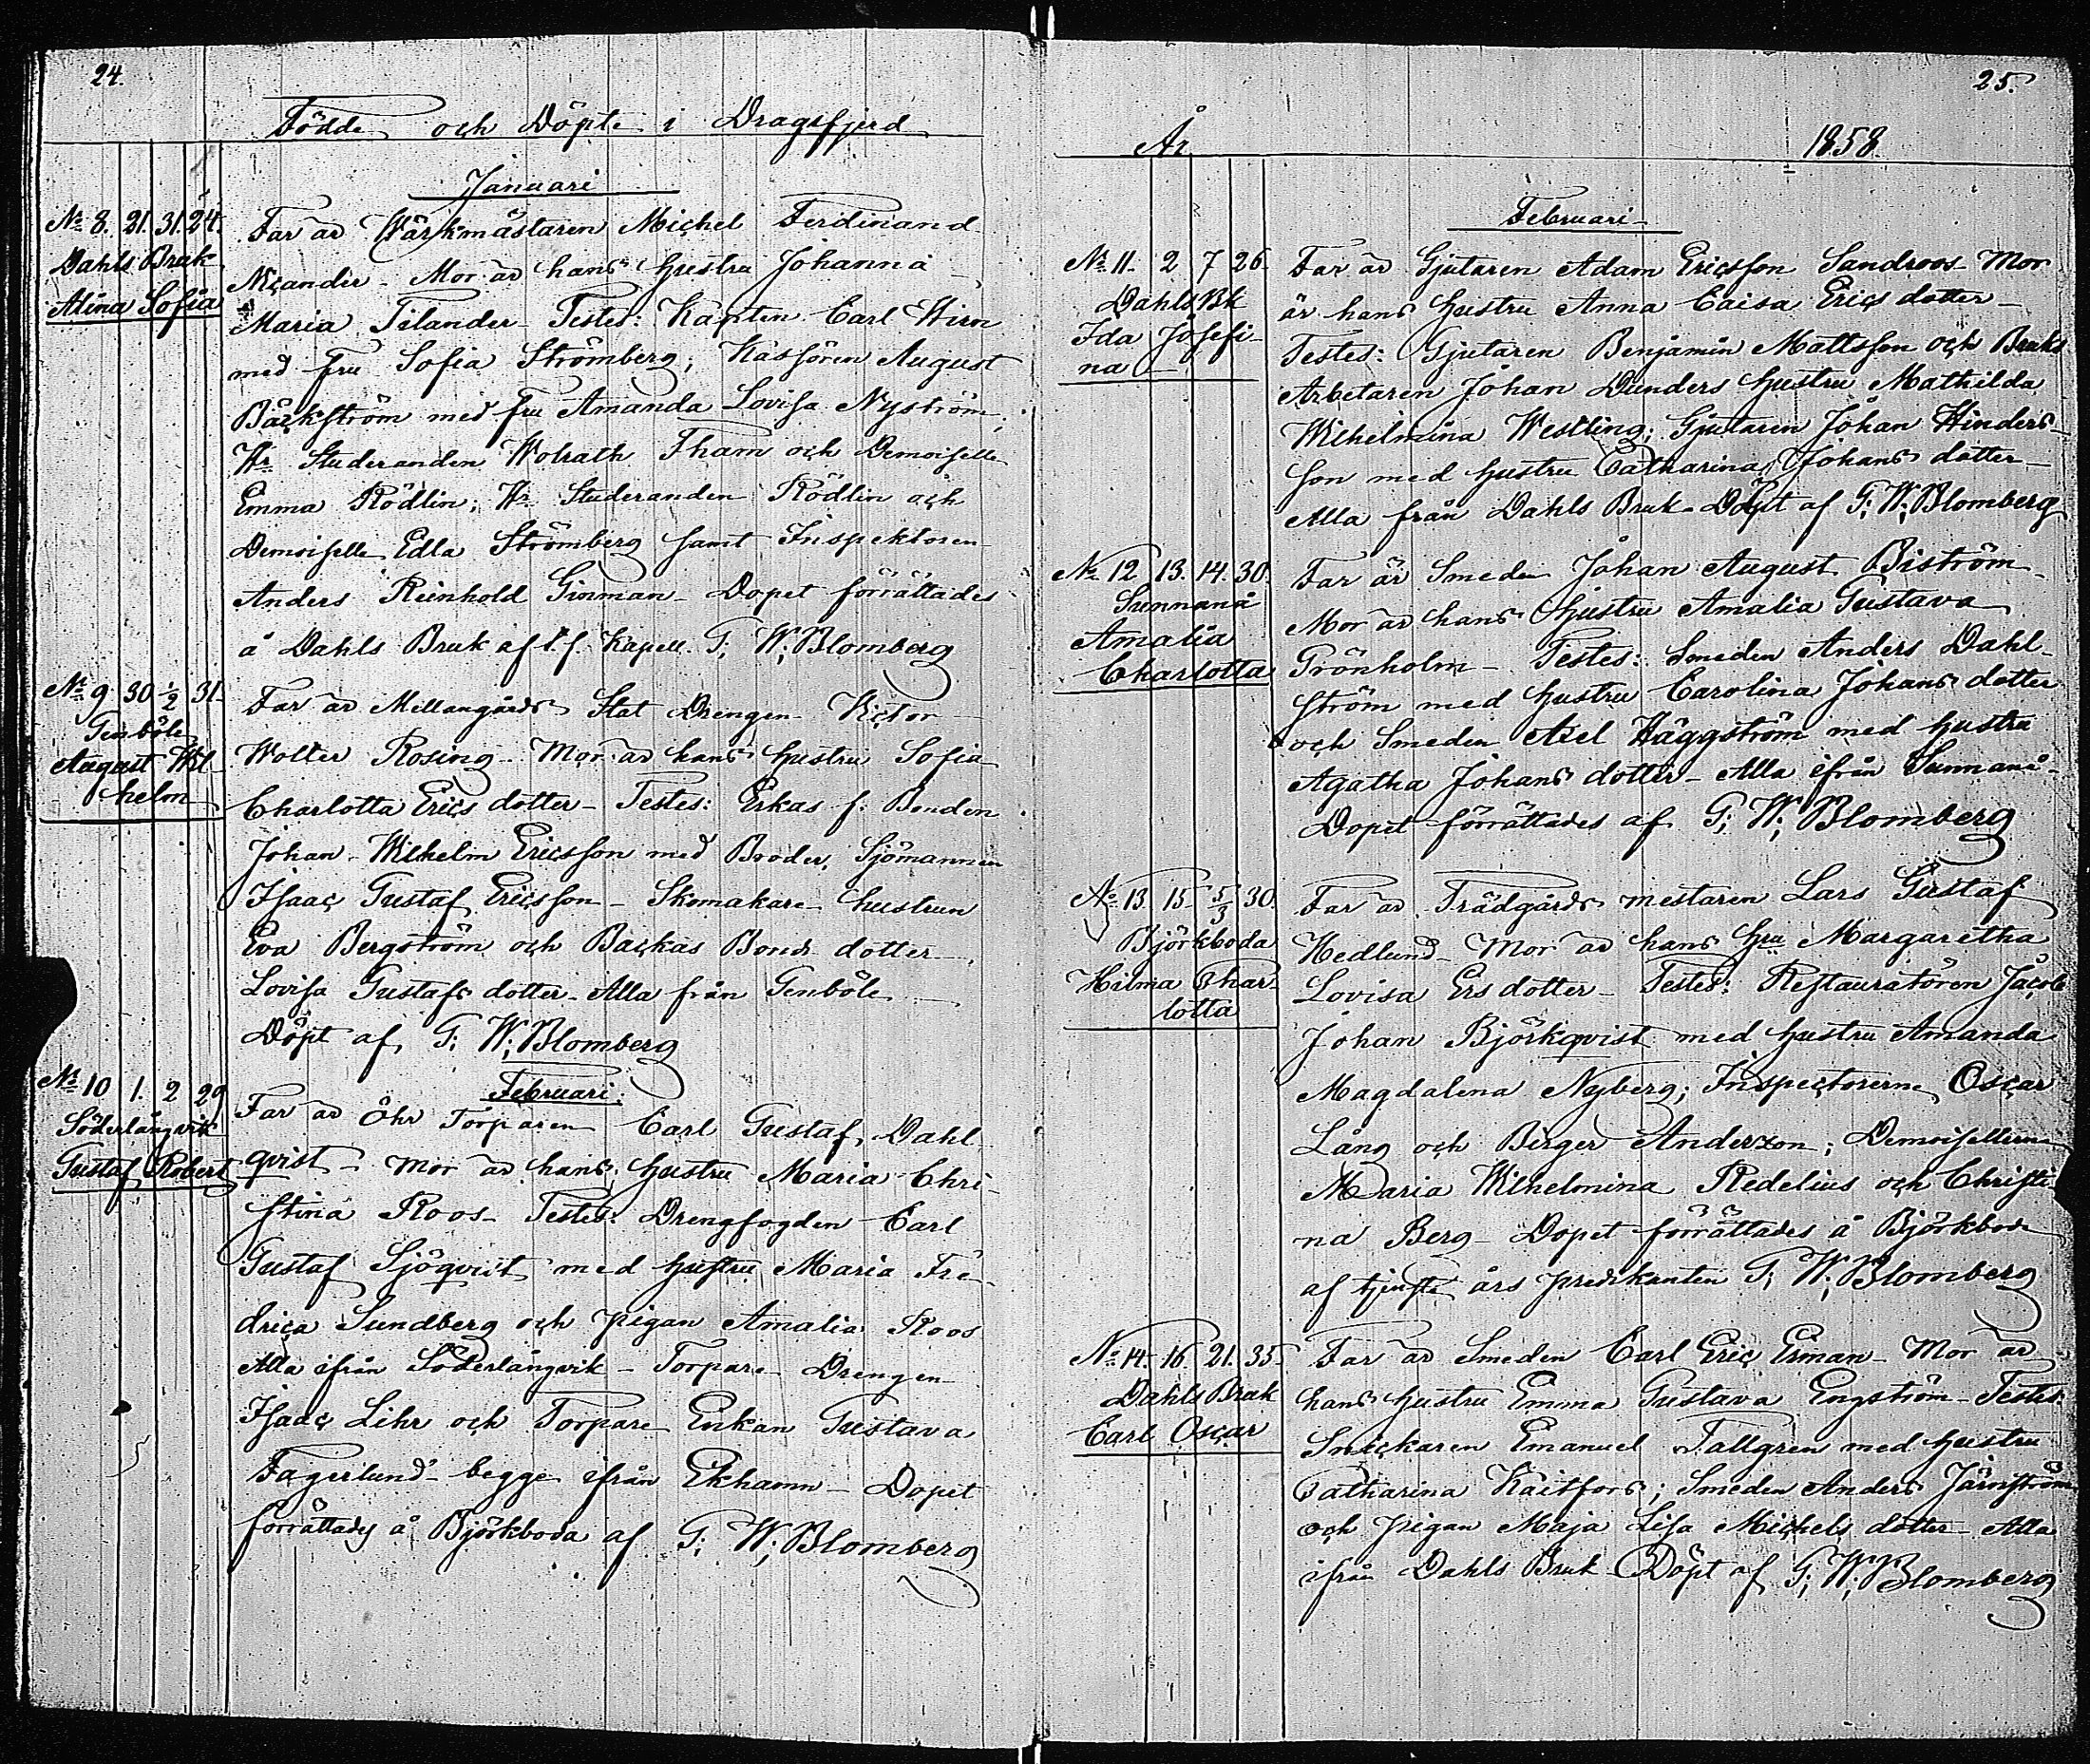 24.
Födde och Döpte i Dragsfjerd
Januari
No 8. 21. 31. 24.
Dahls Bruk
Alina Sofia
Far är Wärkmästaren Michel Ferdinand
Nicander - Mor är hans hustru Johanna
Maria Tilander - Testes: Kapten Carl Hirn
med fru Sofia Strömberg; Kassören August
Bäckström med fru Amanda Lovisa Nyström;
Hr Studeranden Wolrath Tham och Demoiselle
Emma Rödlin; Hr Studeranden Rödlin och
Demoiselle Edla Strömberg samt Inspektoren
Anders Reinhold Ginman - Dopet förrättades
å Dahls Bruk af t. f. Kapell. G; W; Blomberg
No 9 30 1/2 31.
Genböle
August Wil-
helm
Far är Mellangårds Stat Drengen Victor
Wolter Rosing - Mor är hans hustru Sofia
Charlotta Erics dotter - Testes: Erkas f: Bonden
Johan Wilhelm Ericsson med Broder, Sjömannen
Isaac Gustaf Ericsson - Skomakare hustrun
Eva Bergström och Backas Bonde dotter
Lovisa Gustafs dotter - Alla från Genböle
Döpt af G; W; Blomberg
Februari.
No 10 1. 2 29
Söderlångvik
Gustaf Robert
Far är Öhr Torparen Carl Gustaf Dahl
qvist - Mor är hans hustru Maria Chri-
stina Roos - Testes: Drengfogden Carl
Gustaf Sjöqvist med hustru Maria Fre-
drica Sundberg och pigan Amalia Roos
Alla ifrån Söderlångvik - Torpare Drengen
Isaac Lihr och Torpare Enkan Gustava
Fagerlund - begge ifrån Ekhamn - Dopet
förrättades å Björkboda af G; W; Blomberg
25.
År 1858.
Februari
No 11. 2 7 26.
Dahls Bk
Ida Josefi-
na
Far är Gjutaren Adam Ericsson Sandroos - Mor
är hans hustru Anna Caisa Erics dotter -
Testes: Gjutaren Benjamin Mattsson och Bruks
Arbetaren Johan Dunders hustru Mathilda
Wilhelmina Westling; Gjutaren Johan Hinders-
son med hustru Catharina Johans dotter -
Alla från Dahls Bruk - Döpt af G; W; Blomberg
No 12 13. 14. 30.
Sunnanå
Amalia
Charlotta
Far är Smeden Johan August Biström -
Mor är hans hustru Amalia Gustava
Grönholm - Testes: Smeden Anders Dahl-
ström med hustru Carolina Johans dotter
och Smeden Axel Häggström med hustru
Agatha Johans dotter - Alla ifrån Sunnanå -
Dopet förrättades af G; W; Blomberg
No 13. 15. 5/3 30.
Björkboda
Hilma Char-
lotta
Far är Trädgårds mestaren Lars Gustaf
Hedlund - Mor är hans Hru Margaretha
Lovisa Ers dotter - Testes: Restauratören Jacob
Johan Björkqvist med hustru Amanda
Magdalena Nyberg; Inspectorerne Oscar
Lång och Birger Anderzon; Demoisellerne
Maria Wilhelmina Redelius och Christi-
na Berg - Dopet förrättades å Björkboda
af tjenste års predikanten G; W; Blomberg
No 14. 16. 21. 35.
Dahls Bruk
Carl Oscar
Far är Smeden Carl Eric Erman - Mor är
hans hustru Emma Gustava Engström - Testes:
Snickaren Emanuel Tallgren med hustru
Catharina Kaitfors; Smeden Anders Järnström
och pigan Maja Lisa Michels dotter - Alla
ifrån Dahls Bruk - Döpt af G; W; Blomberg